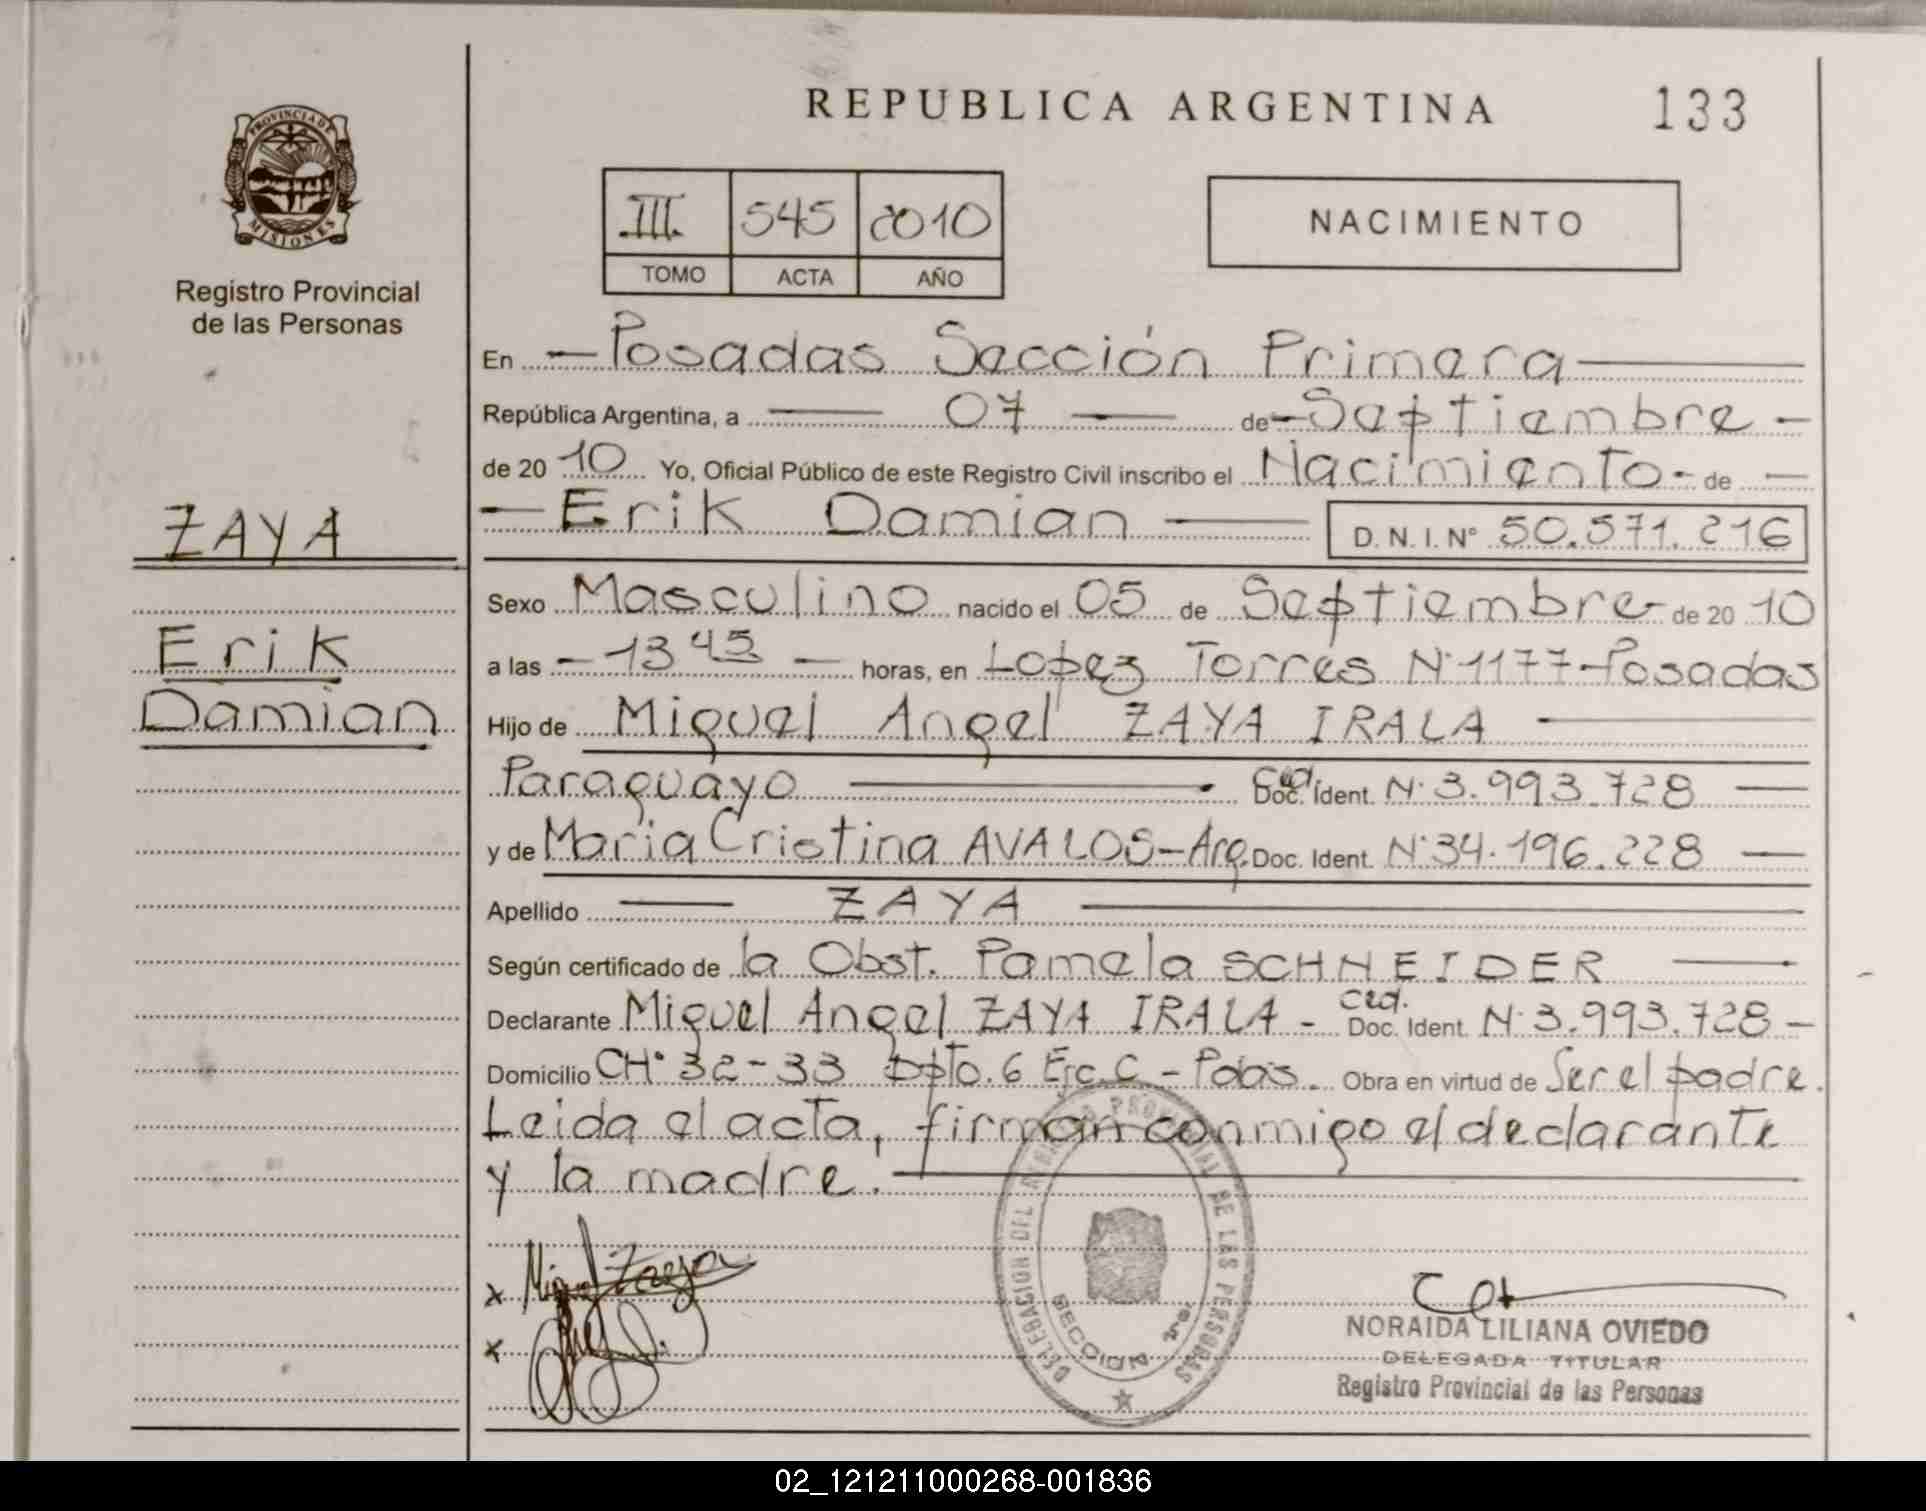 REPUBLICA ARGENTINA
133
PROVINCIA DE
MISIONES
Registro Provincial
de las Personas
III. 545 2010
TOMO ACTA AÑO
NACIMIENTO
En Posadas Sección Primera
República Argentina, a 07 de Septiembre
de 20 10 Yo, Oficial Público de este Registro Civil inscribo el Nacimiento de
Erik Damian D.N.I.Nº 50.571.216
ZAYA
Erik
Damian
Sexo Masculino nacido el 05 de Septiembre de 20 10
a las 13 45 horas, en Lopez Torres Nº 1177-Posadas
Hijo de Miguel Angel ZAYA IRALA
Paraguayo Ced. Doc. Ident. Nº 3.993.728
y de Maria Cristina AVALOS-Arg. Doc. Ident. Nº 34.196.228
Apellido ZAYA
Según certificado de la Obst. Pamela SCHNEIDER
Declarante Miguel Angel ZAYA IRALA - Ced. Doc. Ident. Nº 3.993.728
Domicilio CHº 32-33 Dpto. 6 Esc. C - Pdas. Obra en virtud de Ser el padre.
Leida el acta, firman conmigo el declarante
y la madre.
x Miguel Zaya
x
DELEGACION DEL REGISTRO PROVINCIAL DE LAS PERSONAS
SECCION 1ra.
NORAIDA LILIANA OVIEDO
DELEGADA TITULAR
Registro Provincial de las Personas
02_121211000268-001836